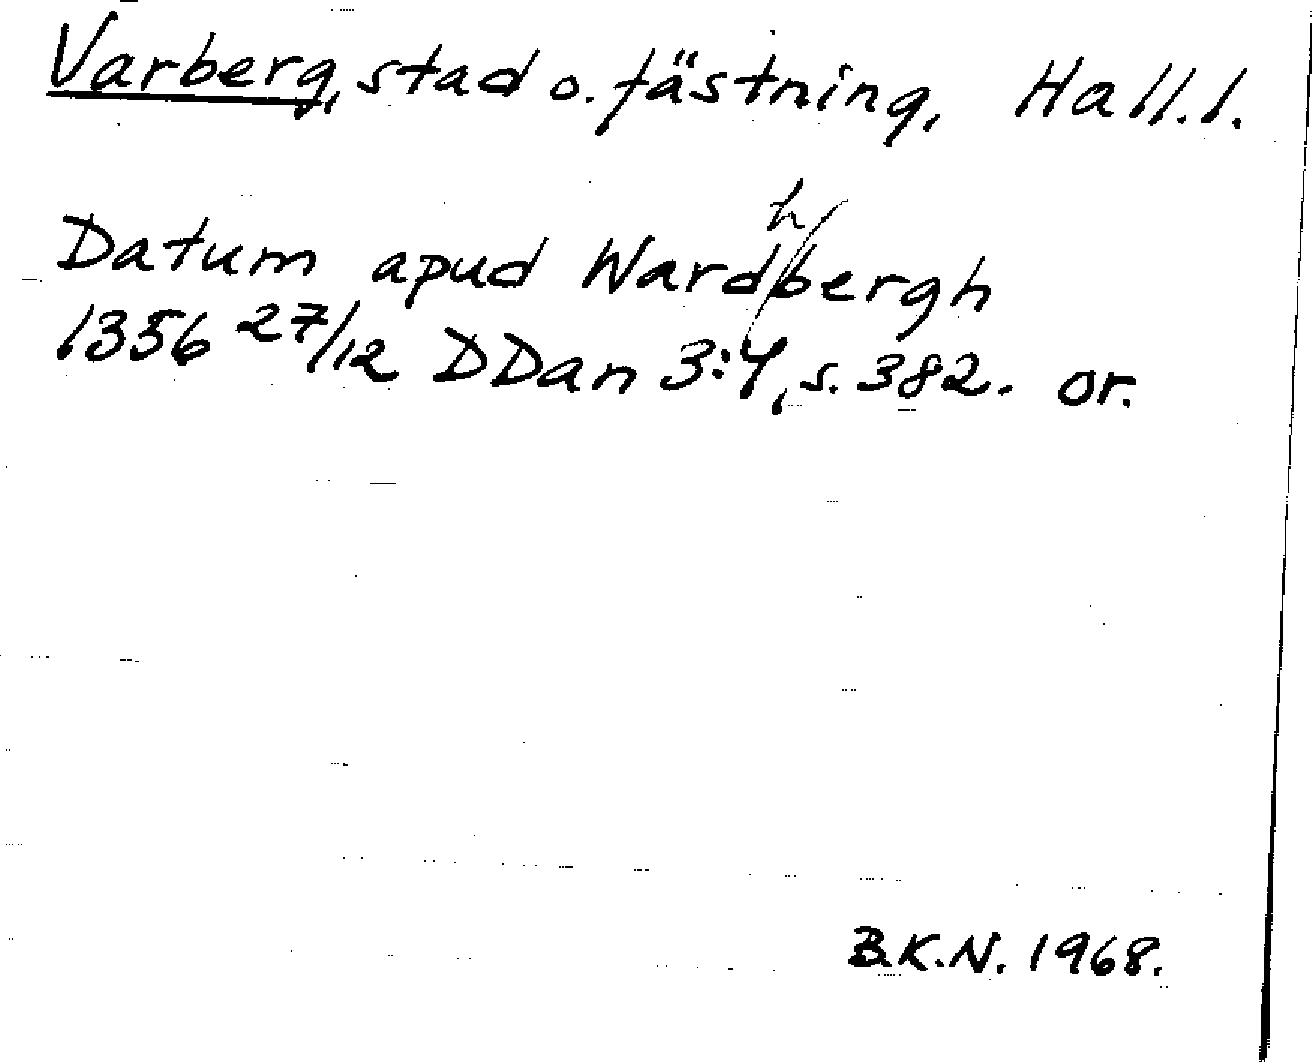 Varberg, stad o. fästning, Hall.l.
Datum apud Wardhbergh
1356 27/12 DDan 3:4, s. 382. or.
B.K.N. 1968.